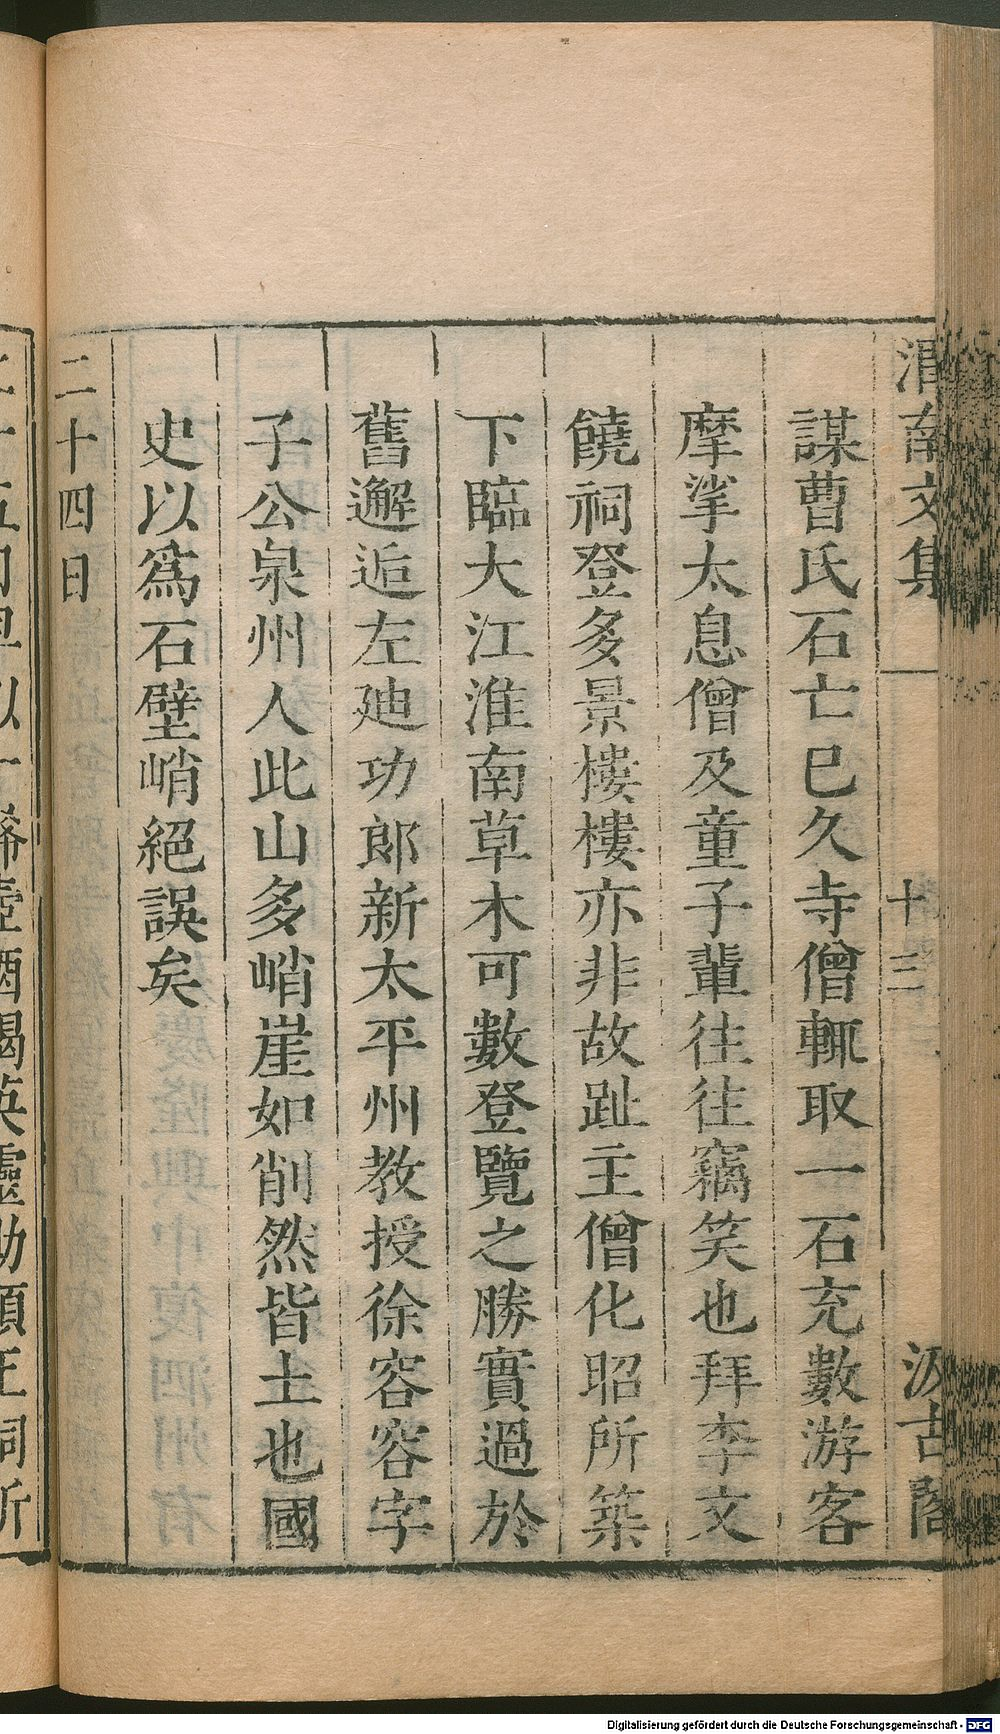 渭南文集 十三 汲古閣
謀曹氏石亡巳久寺僧輒取一石充數游客
摩挲太息僧及童子輩往往竊笑也拜李文
饒祠登多景樓樓亦非故趾主僧化昭所築
下臨大江淮南草木可數登覽之勝實過於
舊邂逅左廸功郎新太平州教授徐容容字
子公泉州人此山多峭崖如削然皆土也國
史以爲石壁峭絕誤矣
二十四日
Digitalisierung gefördert durch die Deutsche Forschungsgemeinschaft - DFG